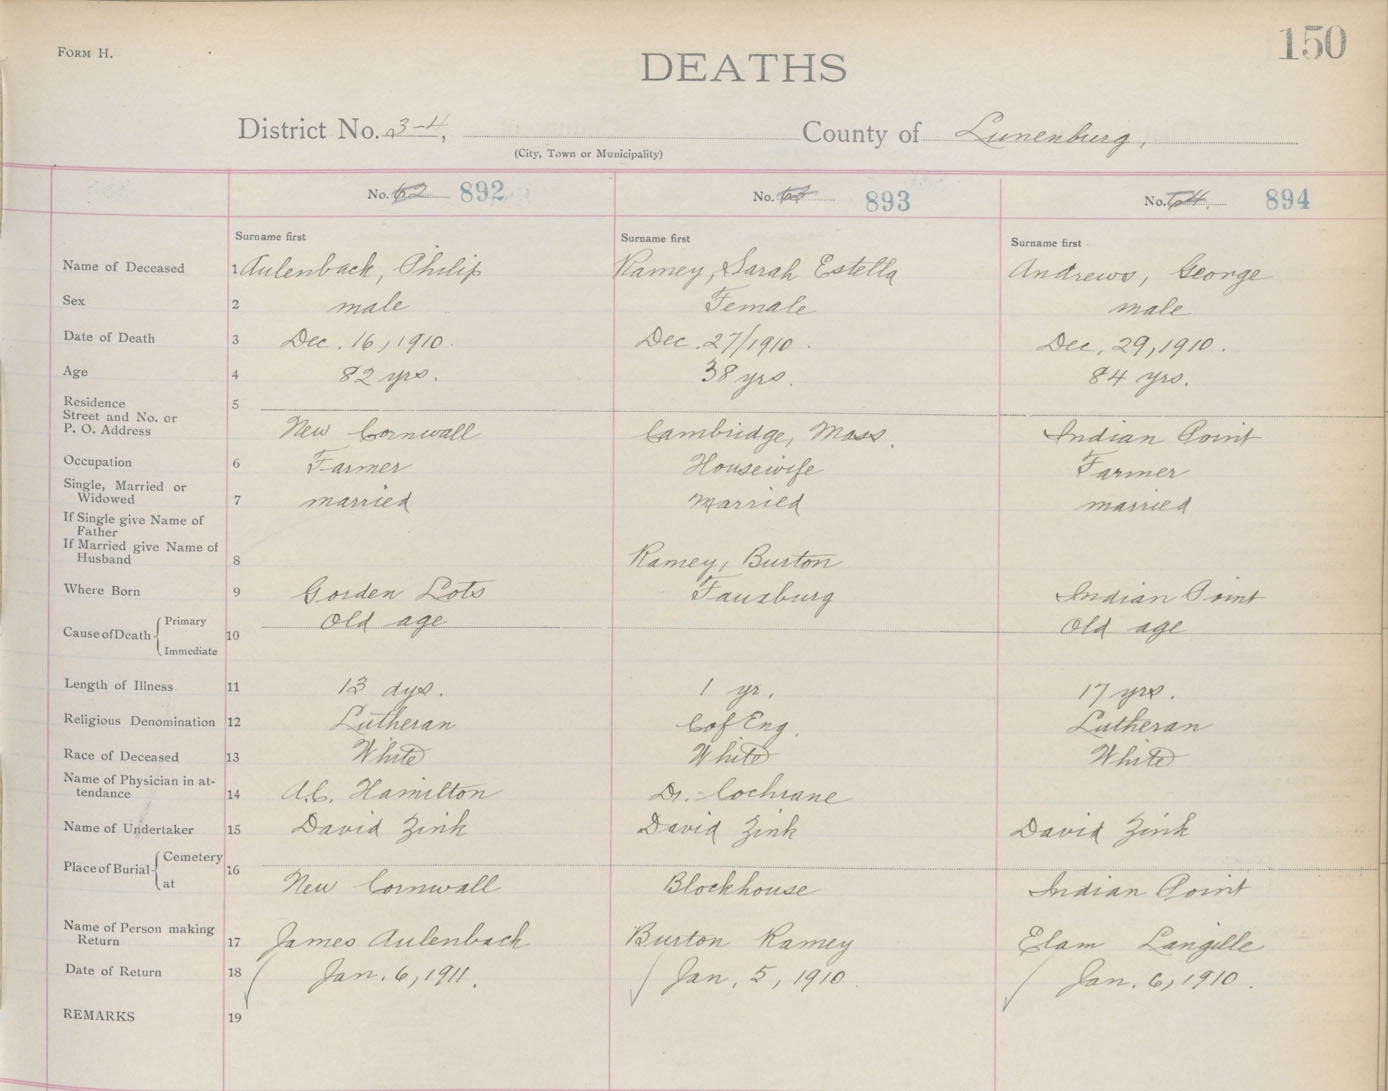 FORM H.
150
DEATHS
District No. 3-4, County of Lunenburg,
(City, Town or Municipality)
No. 62 892 No. 63 893 No. 64 894
Surname first Surname first Surname first
Name of Deceased 1 Aulenback, Philip Ramey, Sarah Estella Andrews, George
Sex 2 male Female male
Date of Death 3 Dec. 16, 1910. Dec. 27/1910. Dec. 29, 1910.
Age 4 82 yrs. 38 yrs. 84 yrs.
Residence 5
Street and No. or
P. O. Address New Cornwall Cambridge, Mass. Indian Point
Occupation 6 Farmer Housewife Farmer
Single, Married or
Widowed 7 married married married
If Single give Name of
Father
If Married give Name of
Husband 8 Ramey, Burton
Where Born 9 Gorden Lots Fauxburg Indian Point
Cause of Death Primary 10 Old age Old age
Immediate
Length of Illness 11 13 dys. 1 yr. 17 yrs.
Religious Denomination 12 Lutheran C of Eng. Lutheran
Race of Deceased 13 White White White
Name of Physician in at-
tendance 14 A.C. Hamilton Dr. Cochrane
Name of Undertaker 15 David Zink David Zink David Zink
Place of Burial Cemetery 16
at New Cornwall Blockhouse Indian Point
Name of Person making
Return 17 James Aulenback Burton Ramey Elam Langille
Date of Return 18 Jan. 6, 1911. Jan. 5, 1910. Jan. 6, 1910.
REMARKS 19